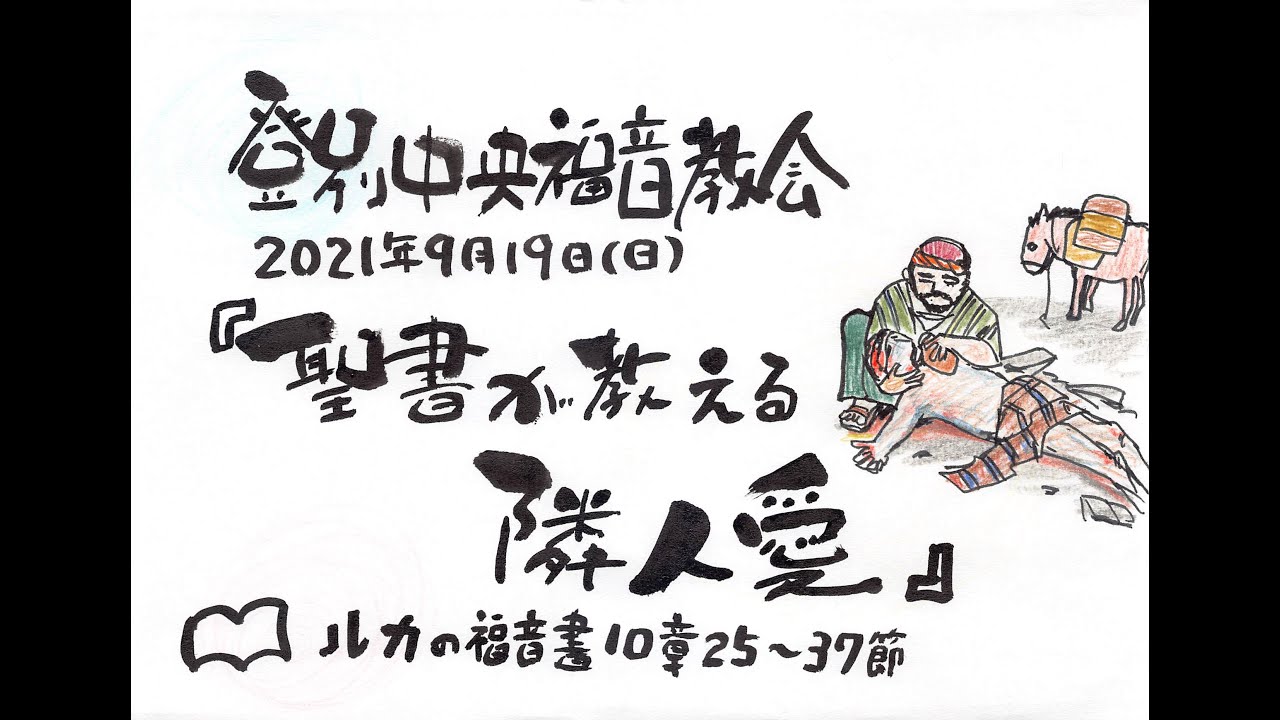 登別中央福音教会
2021年9月19日(日)
『聖書が教える
隣人愛』
ルカの福音書10章25〜37節